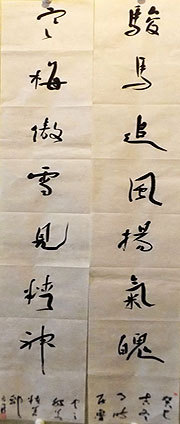 駿馬追風揚氣魄
寒梅傲雪見精神